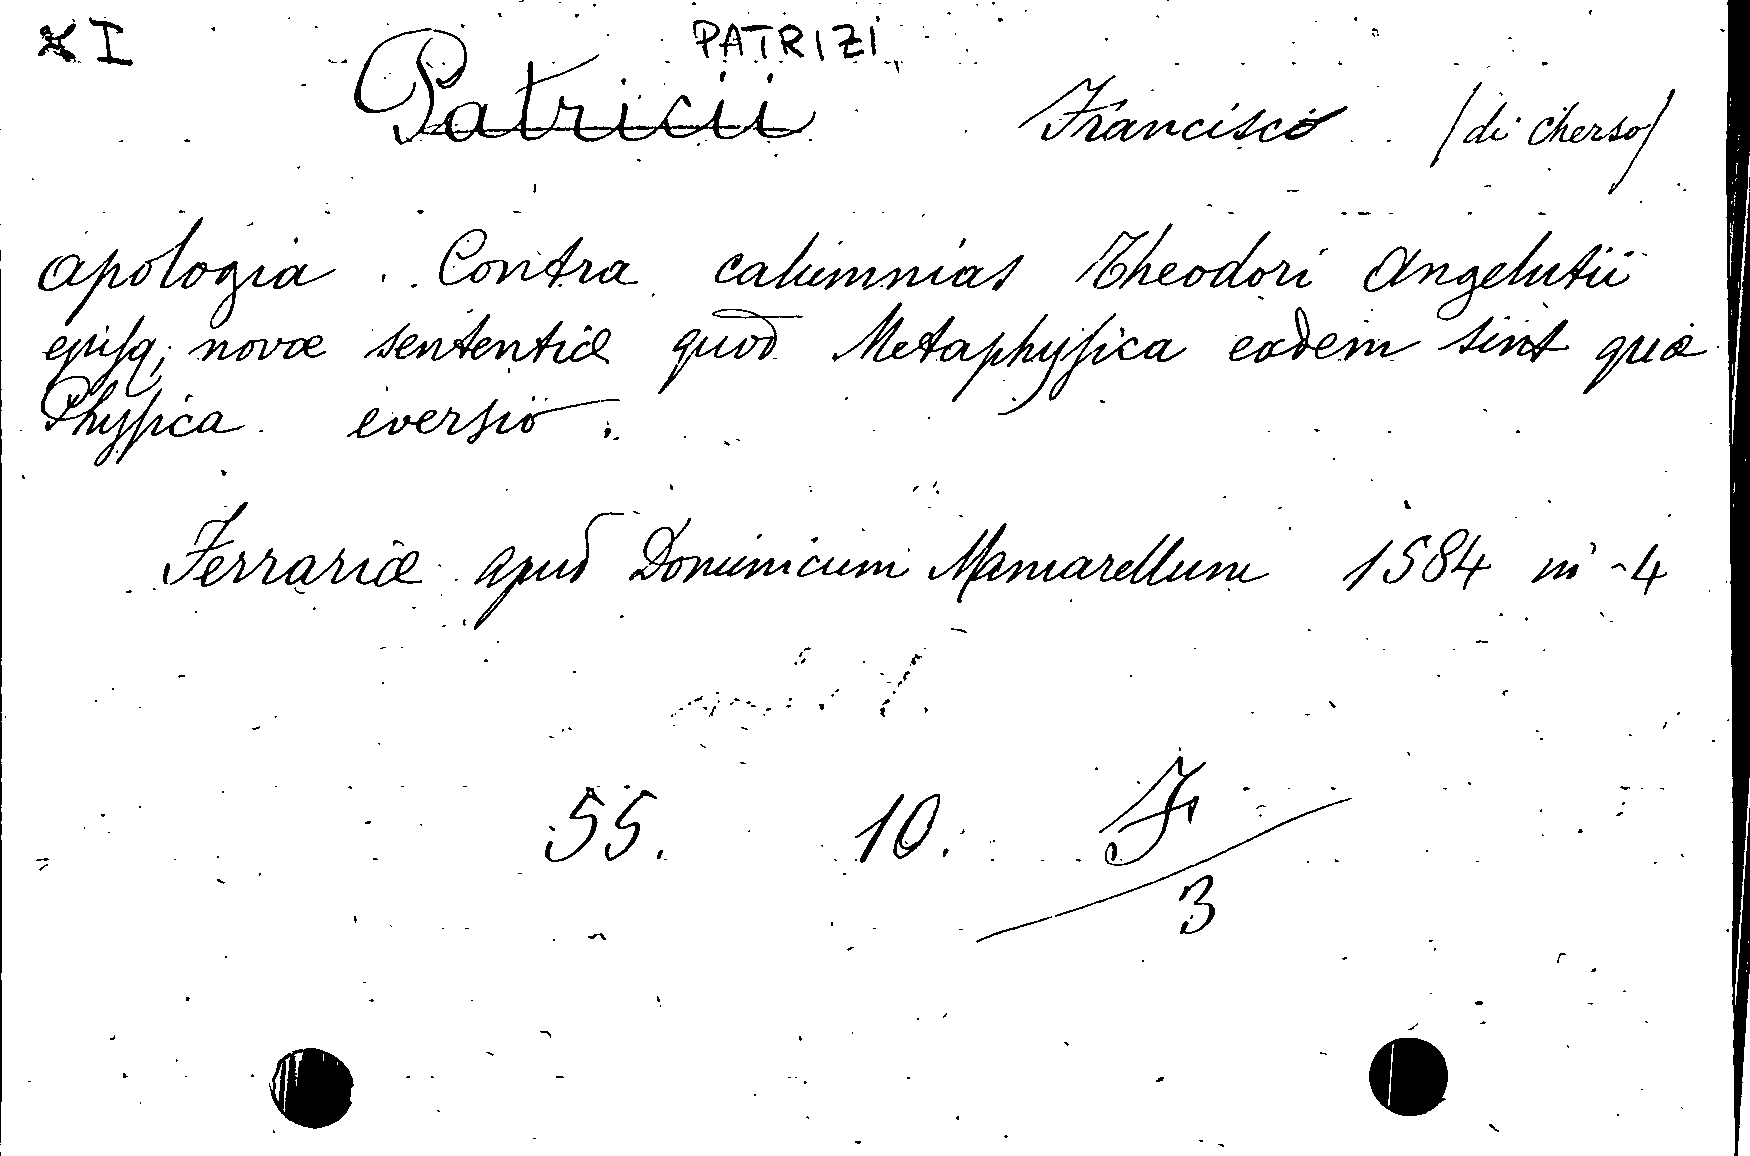 I PATRIZI
Patricii Francisco /di Cherso/
Apologia. Contra calumnias Theodori Angelutii
eiusq; novæ sententiæ quod Metaphysica eadem sint quæ
Physica eversio.
Ferrariæ apud Dominicum Mamarellum 1584 in-4
55. 10. F
3